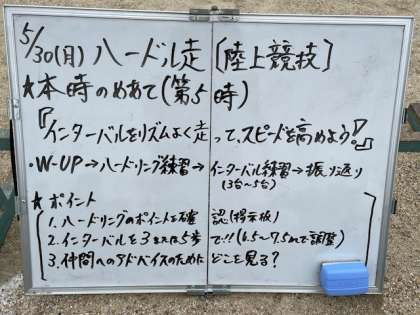 5/30(月) ハードル走 〔陸上競技〕
★本時のめあて(第5時)
『インターバルをリズムよく走って、スピードを高めよう!』
・W-UP→ハードリング練習→インターバル練習→振り返り
(3台~5台)
★ポイント
1. ハードリングのポイントを確認(掲示板)
2. インターバルを3または5歩で!!(6.5~7.5mで調整)
3. 仲間へのアドバイスのためにどこを見る?